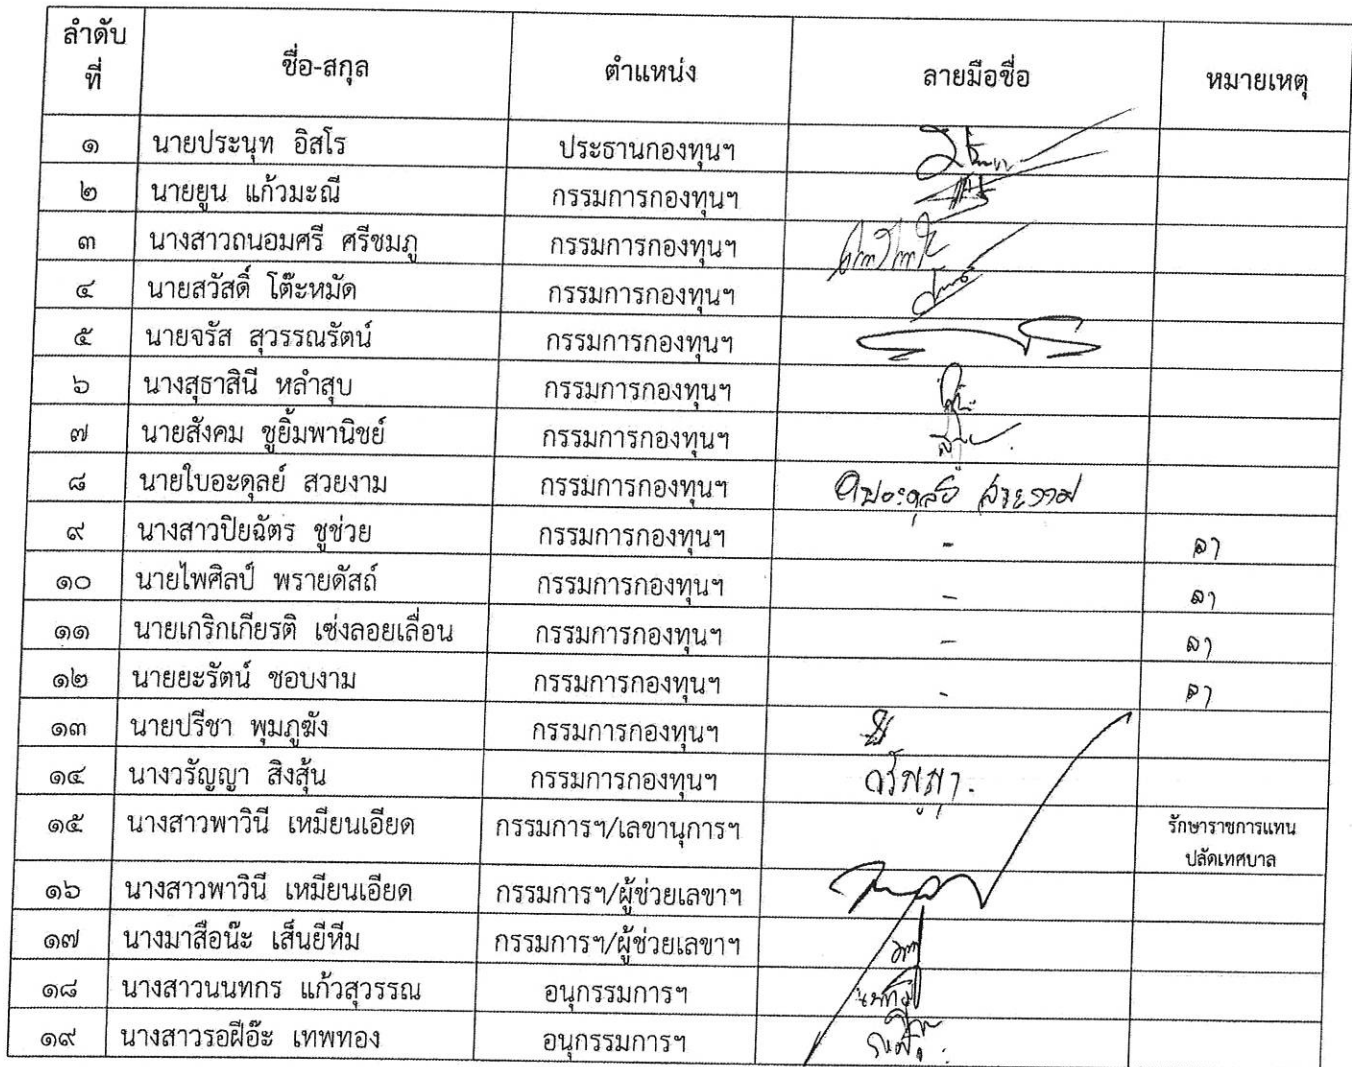 ลำดับที่ ชื่อ-สกุล ตำแหน่ง ลายมือชื่อ หมายเหตุ
๑ นายประนุท อิสโร ประธานกองทุนฯ
๒ นายยูน แก้วมะณี กรรมการกองทุนฯ
๓ นางสาวถนอมศรี ศรีชมภู กรรมการกองทุนฯ
๔ นายสวัสดิ์ โต๊ะหมัด กรรมการกองทุนฯ
๕ นายจรัส สุวรรณรัตน์ กรรมการกองทุนฯ
๖ นางสุธาสินี หลำสุบ กรรมการกองทุนฯ
๗ นายสังคม ชูยิ้มพานิชย์ กรรมการกองทุนฯ
๘ นายใบอะดุลย์ สวยงาม กรรมการกองทุนฯ ใบอะดุลย์ สวยงาม
๙ นางสาวปิยฉัตร ชูช่วย กรรมการกองทุนฯ - ลา
๑๐ นายไพศิลป์ พรายดัสถ์ กรรมการกองทุนฯ - ลา
๑๑ นายเกริกเกียรติ เซ่งลอยเลื่อน กรรมการกองทุนฯ - ลา
๑๒ นายยะรัตน์ ชอบงาม กรรมการกองทุนฯ - ลา
๑๓ นายปรีชา พุมภูฆัง กรรมการกองทุนฯ
๑๔ นางวรัญญา สิงสุ้น กรรมการกองทุนฯ วรัญญา
๑๕ นางสาวพาวินี เหมียนเอียด กรรมการฯ/เลขานุการฯ รักษาราชการแทน
ปลัดเทศบาล
๑๖ นางสาวพาวินี เหมียนเอียด กรรมการฯ/ผู้ช่วยเลขาฯ
๑๗ นางมาสือน๊ะ เส็นยีหีม กรรมการฯ/ผู้ช่วยเลขาฯ
๑๘ นางสาวนนทกร แก้วสุวรรณ อนุกรรมการฯ
๑๙ นางสาวรอฝีอ๊ะ เทพทอง อนุกรรมการฯ